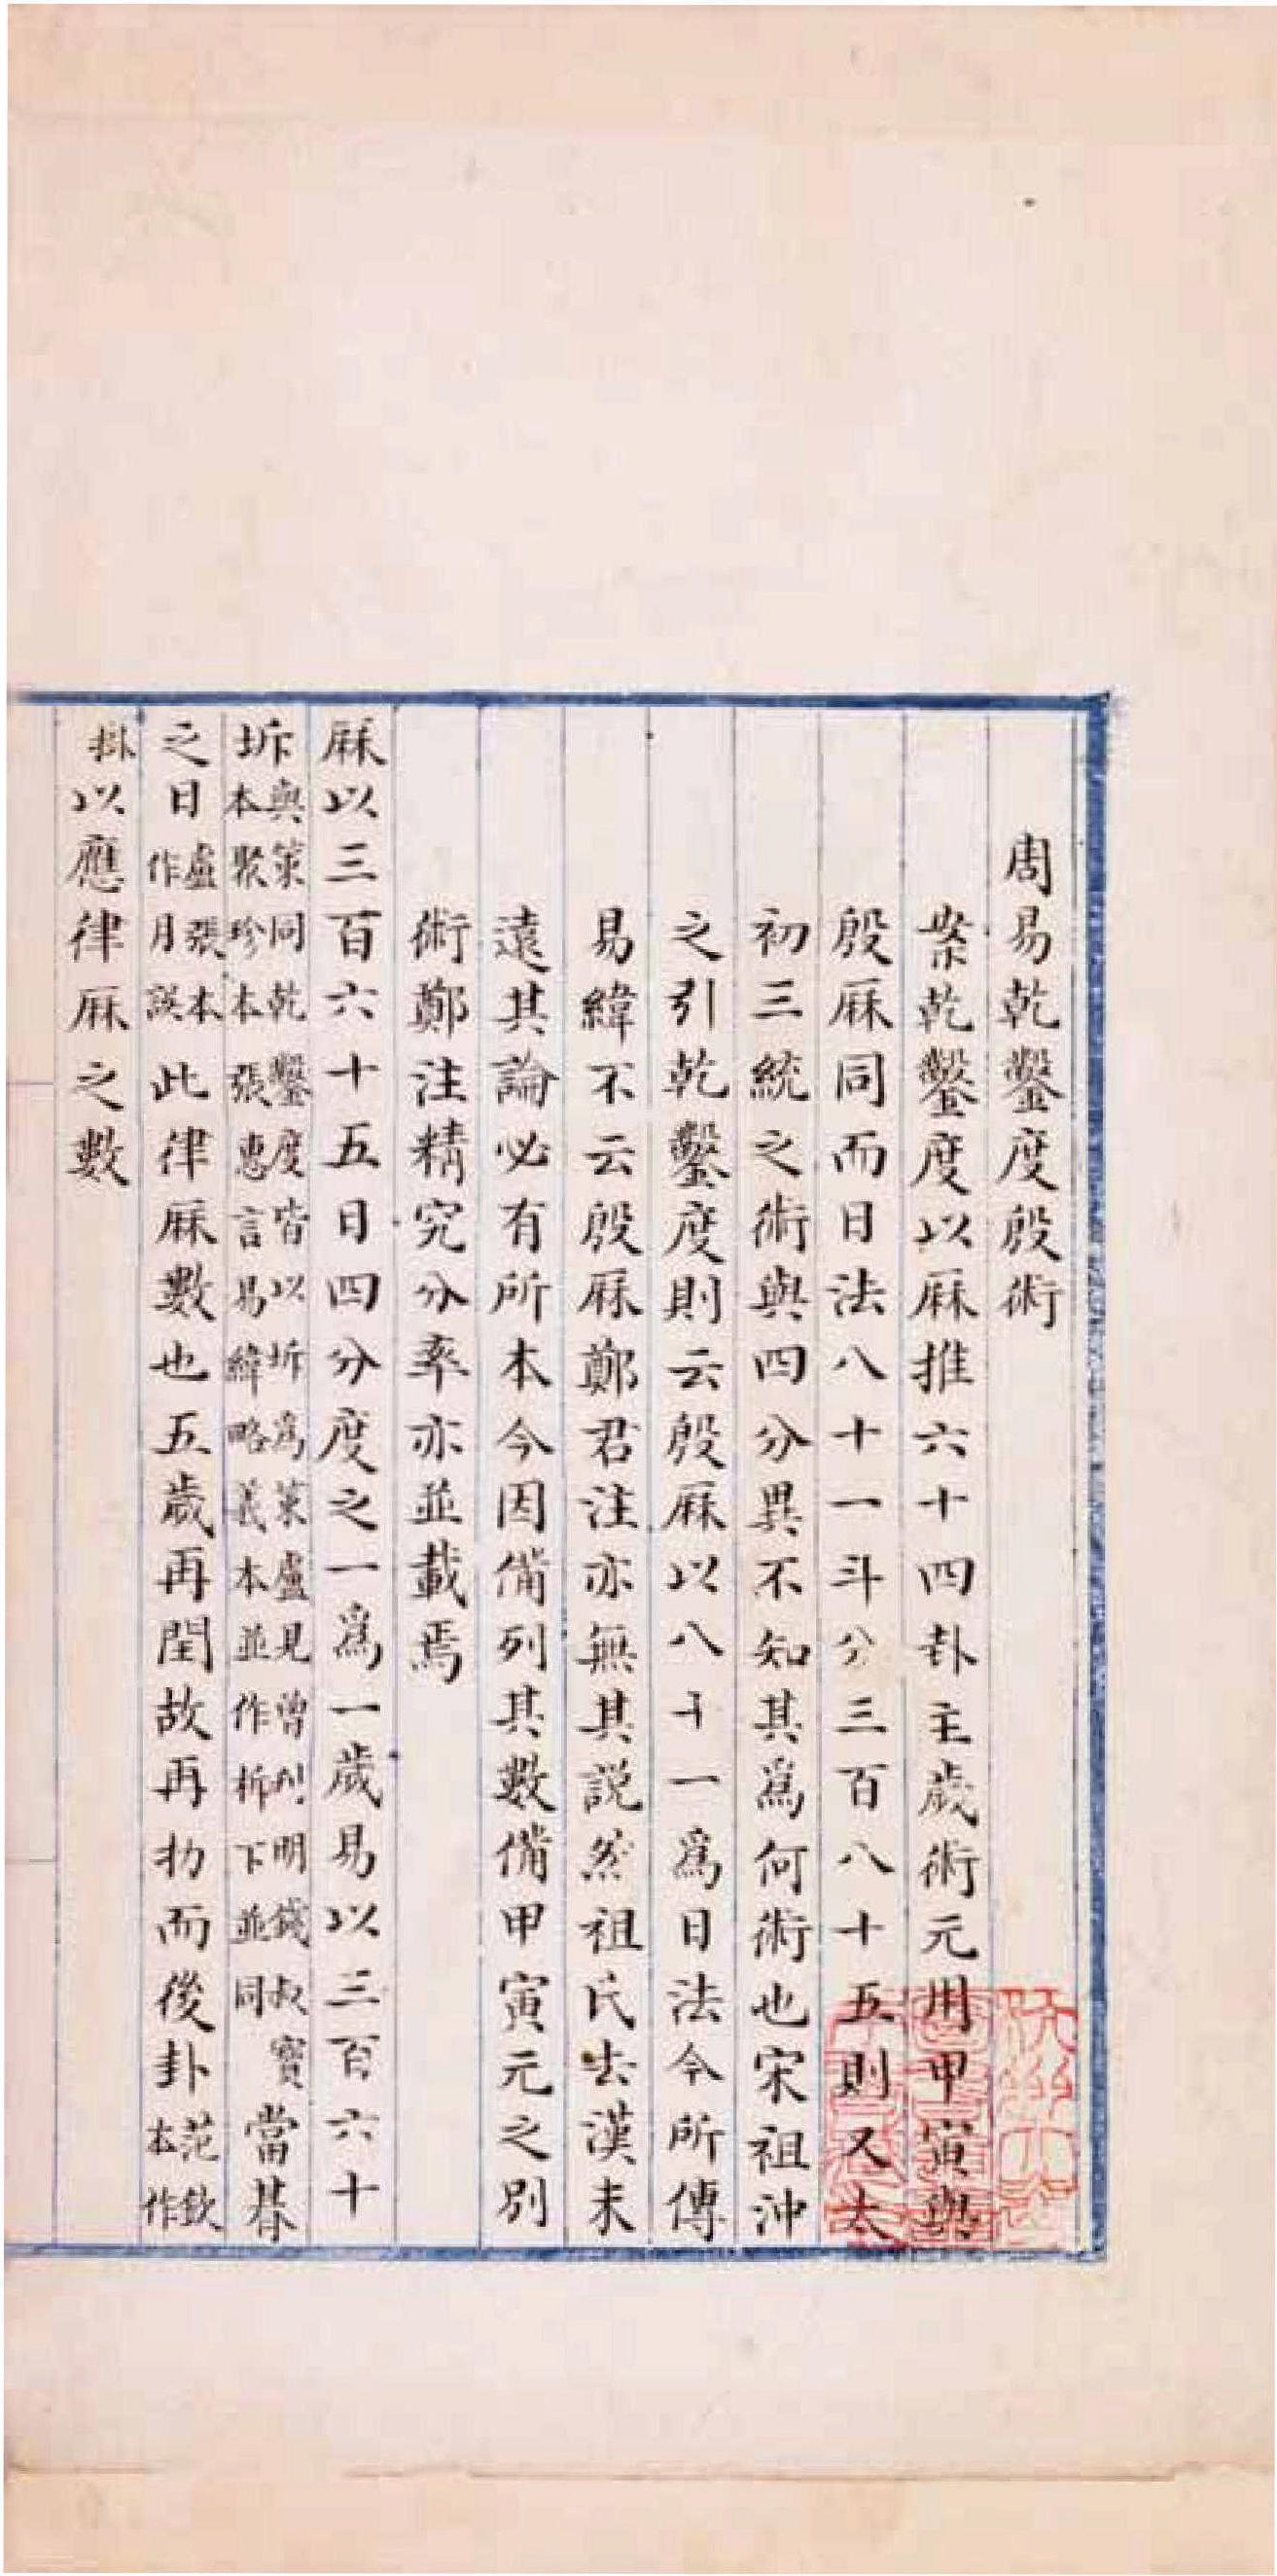 周易乾鑿度殷術
案乾鑿度以厤推六十四卦主歲術元用甲寅與
殷厤同而日法八十一斗分三百八十五則又太
初三統之術與四分異不知其爲何術也宋祖沖
之引乾鑿度則云殷厤以八十一爲日法今所傳
易緯不云殷厤鄭君注亦無其説然祖氏去漢未
遠其論必有所本今因備列其數備甲寅元之別
術鄭注精究分率亦並載焉
厤以三百六十五日四分度之一爲一歲易以三百六十
坼與策同乾鑿度皆以坼爲策盧見曾刋明錢叔寶本聚珍本張惠言易緯略義本並作析下並同當朞
之日盧張本作月誤此律厤數也五歲再閏故再扐而後卦范欽本作
掛以應律厤之數